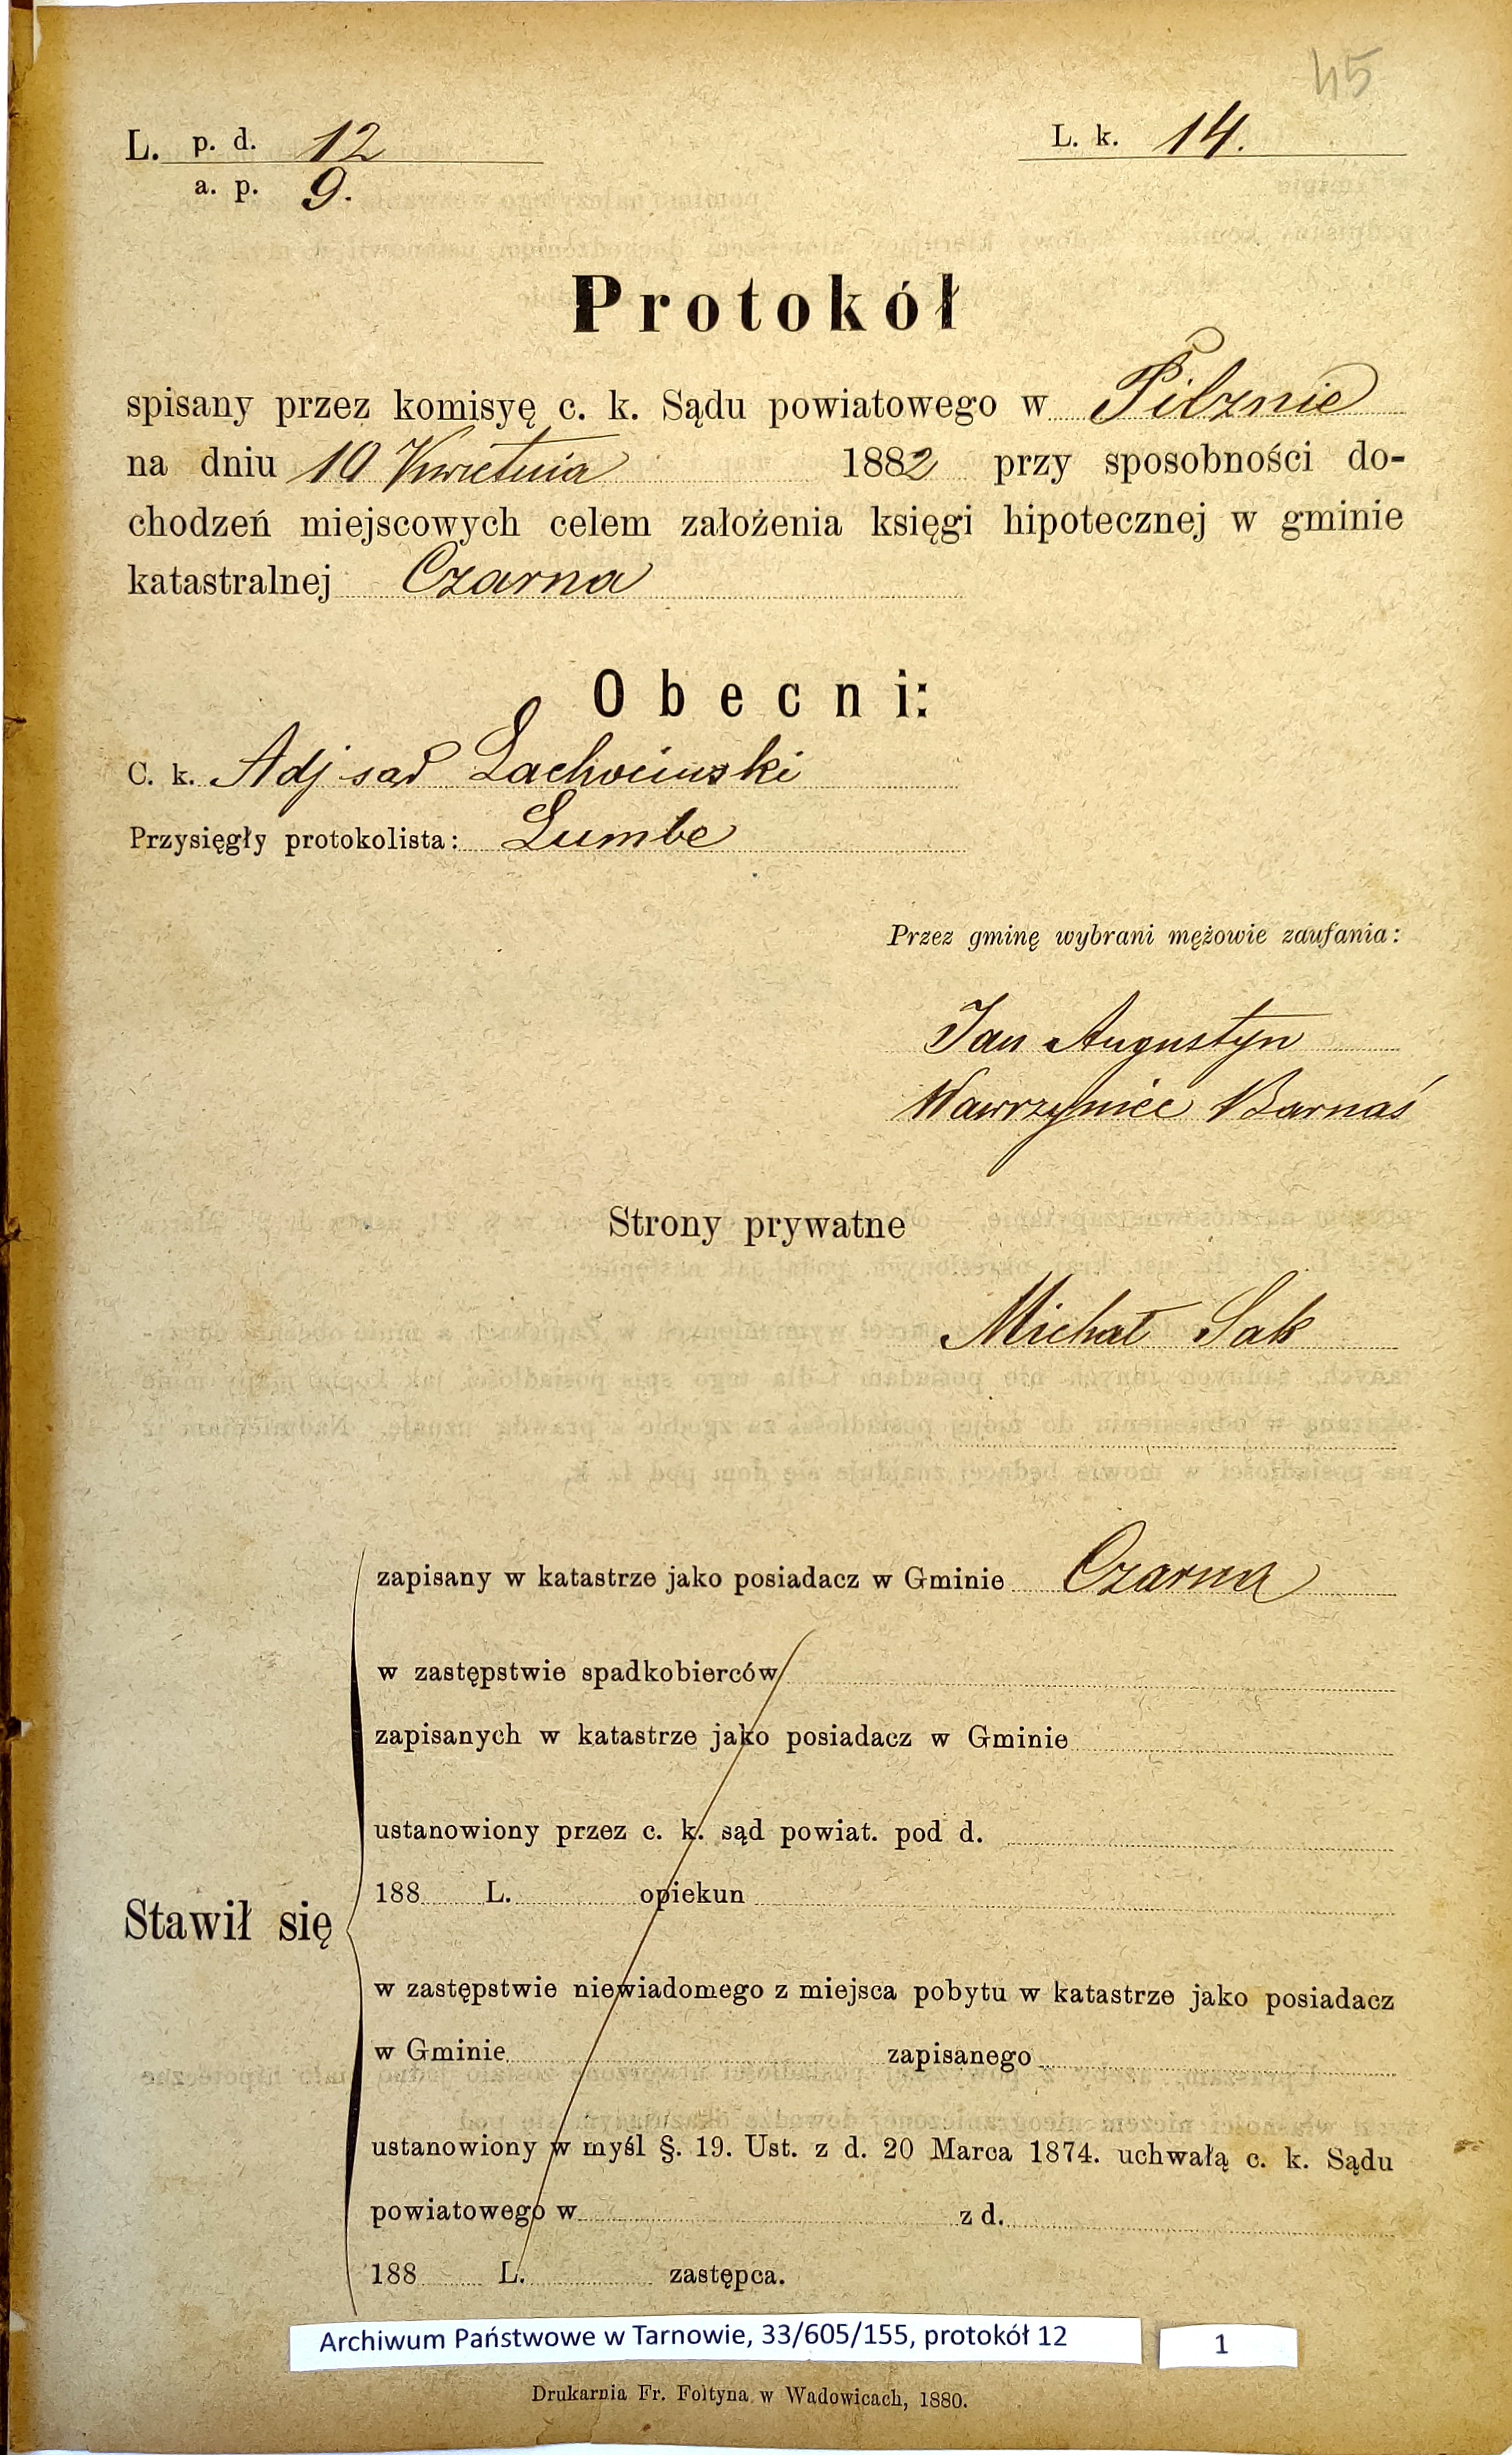 45
L. p. d. 12
a. p. 9.
L. k. 14.
Protokół
spisany przez komisyę c. k. Sądu powiatowego w Pilznie
na dniu 10 Kwietnia 1882 przy sposobności do-
chodzeń miejscowych celem założenia księgi hipotecznej w gminie
katastralnej Czarna
Obecni:
C. k. Adj sąd Lachociuski
Przysięgły protokolista: Lumbe
Przez gminę wybrani mężowie zaufania:
Jan Augustyn
Wawrzyniec Barnaś
Strony prywatne
Michał Sak
zapisany w katastrze jako posiadacz w Gminie Czarna
w zastępstwie spadkobierców
zapisanych w katastrze jako posiadacz w Gminie
ustanowiony przez c. k. sąd powiat. pod d.
188 L. opiekun
Stawił się
w zastępstwie niewiadomego z miejsca pobytu w katastrze jako posiadacz
w Gminie zapisanego
ustanowiony w myśl §. 19. Ust. z d. 20 Marca 1874. uchwałą c. k. Sądu
powiatowego w z d.
188 L. zastępca.
Archiwum Państwowe w Tarnowie, 33/605/155, protokół 12
1
Drukarnia Fr. Foltyna w Wadowicach, 1880.